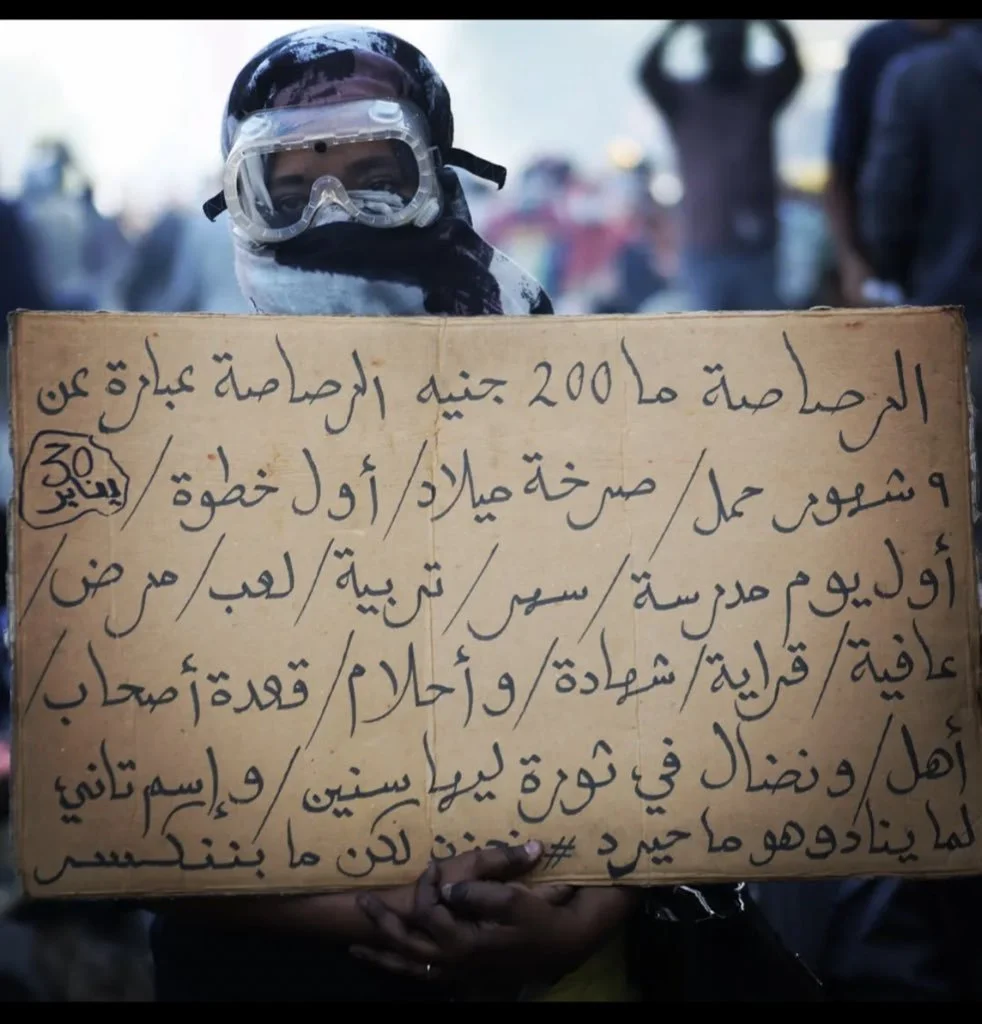 الرصاصة ما 200 جنيه الرصاصة عبارة عن
٩ شهور حمل / صرخة ميلاد / أول خطوة /
30
يناير
أول يوم مدرسة / سهر / تربية / لعب / مرض /
عافية / قراية / شهادة / و أحلام / قعدة أصحاب /
أهل / و نضال في ثورة ليها سنين / و إسم تاني
لما ينادوهو ما حيرد # نحزن لكن ما بننكسر